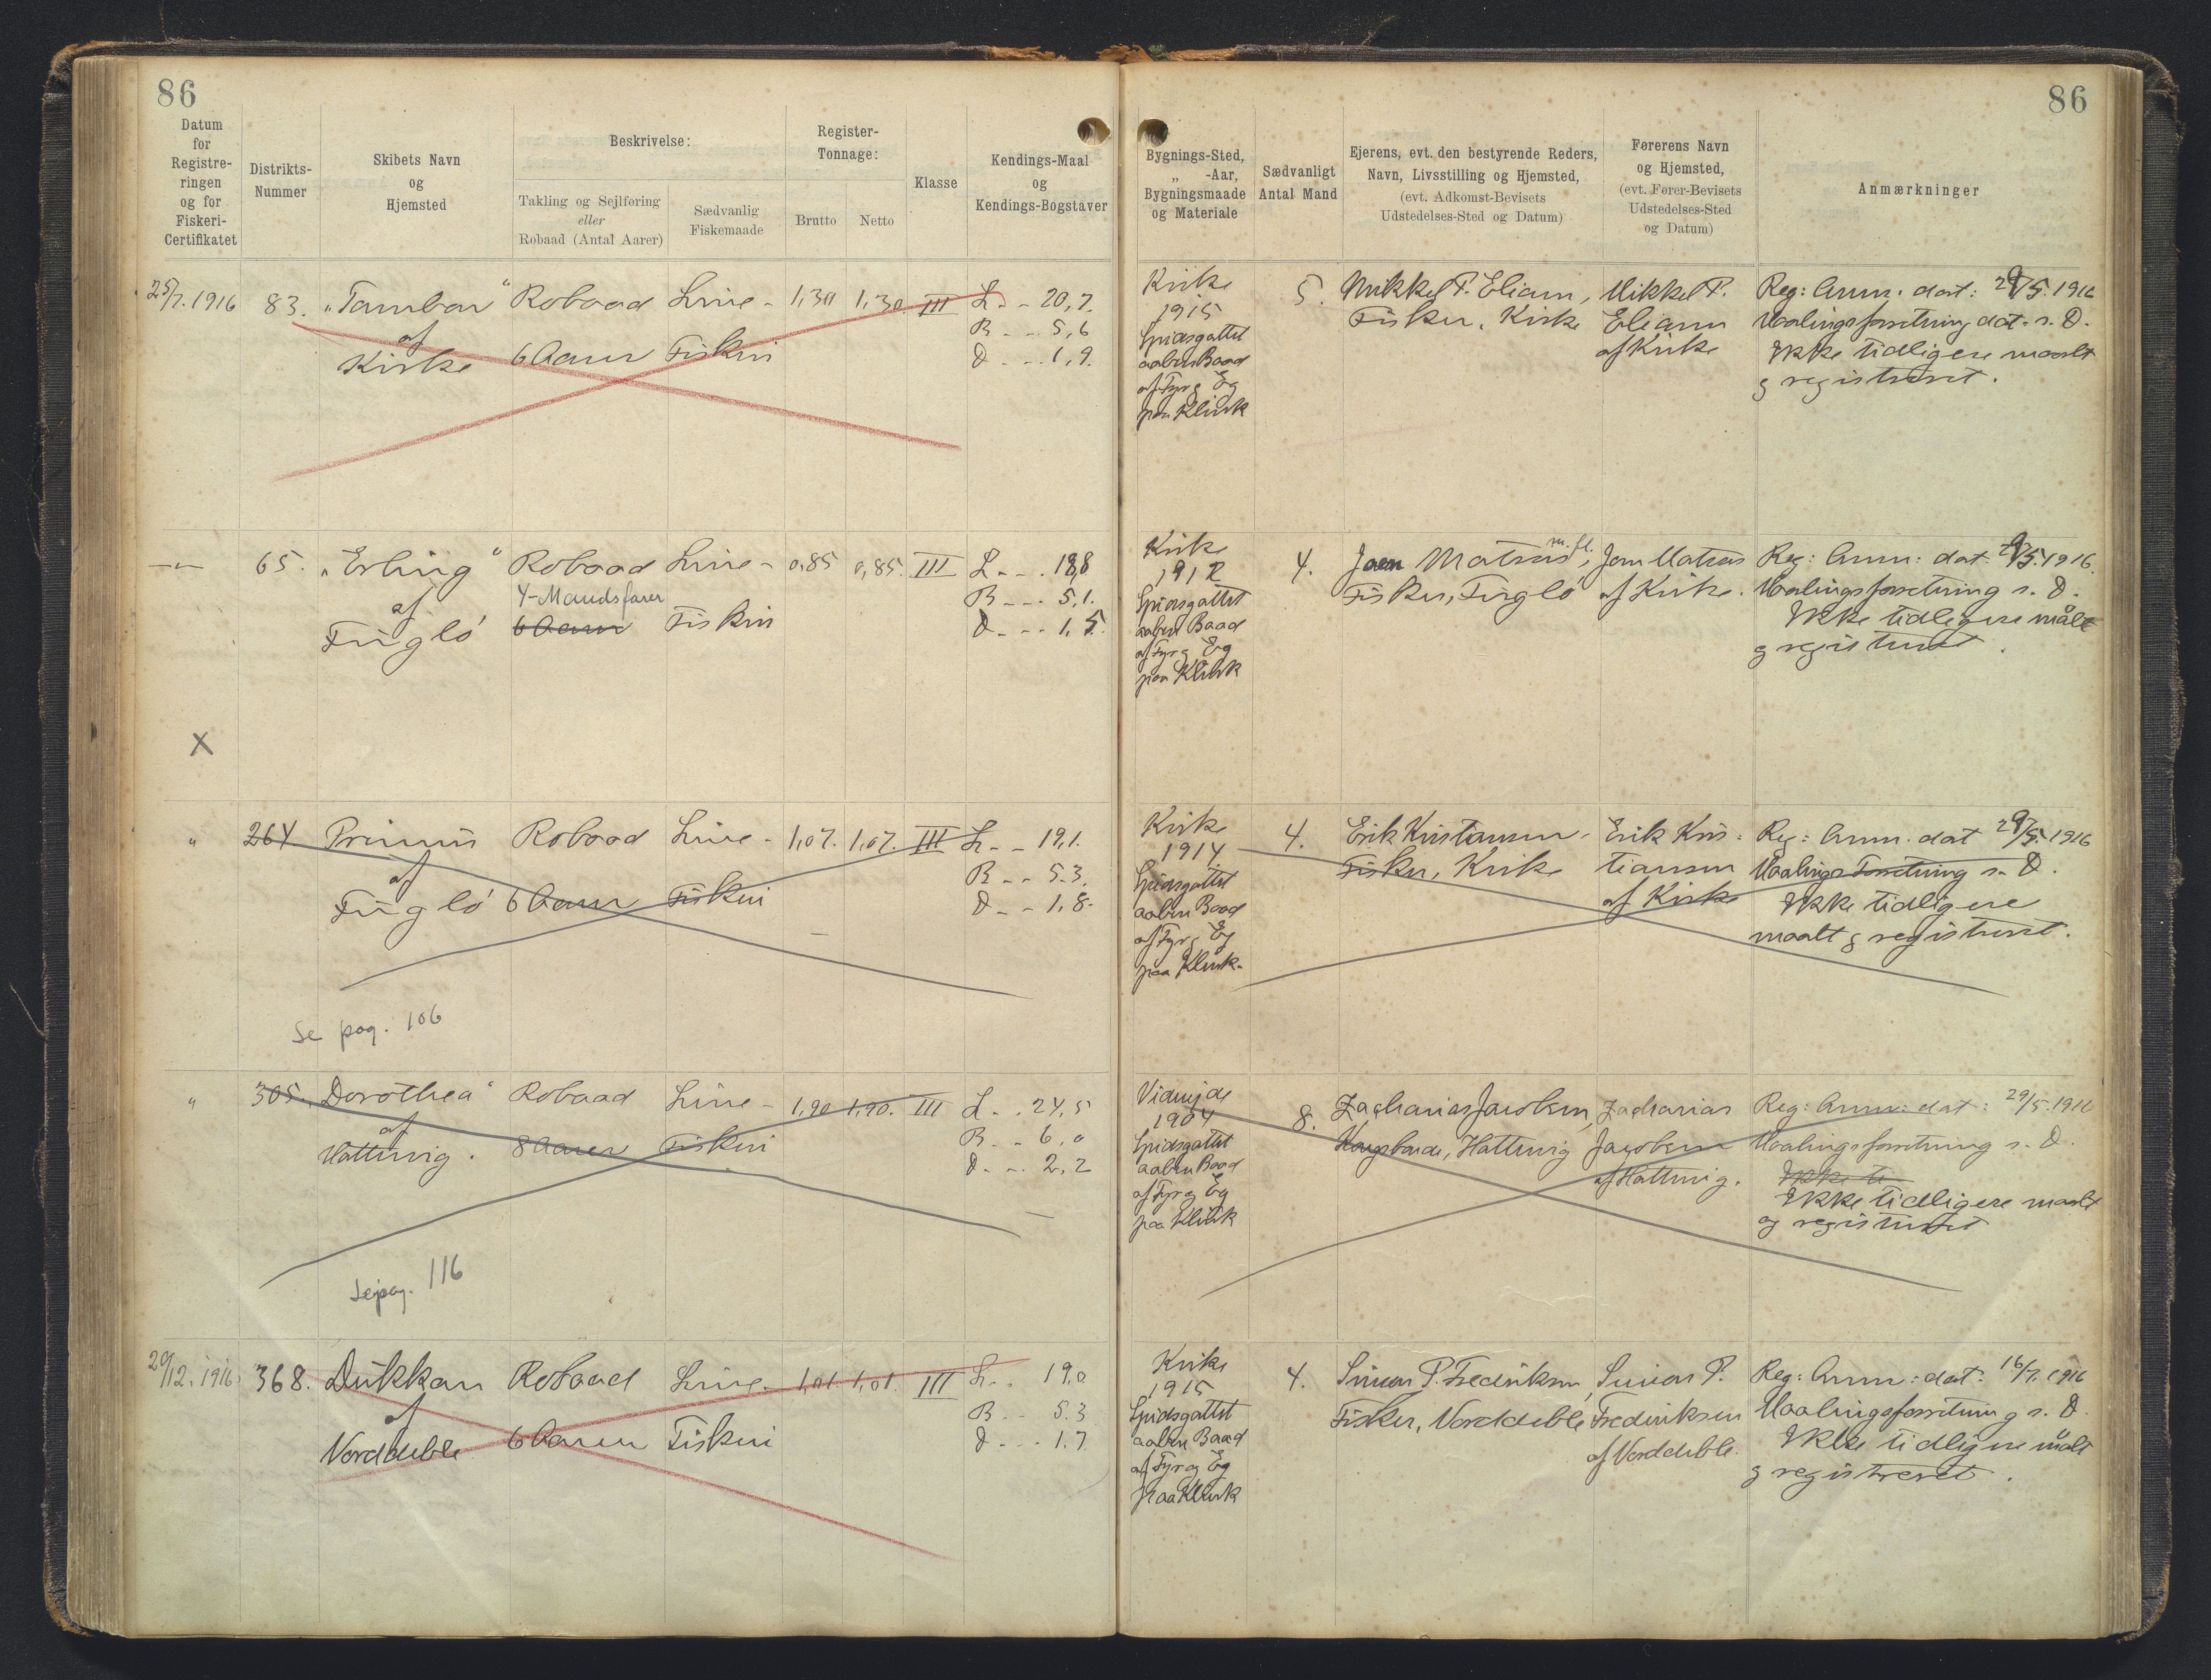 86
Datum
for
Registre-
ringen
og for
Fiskeri-
Certifikatet
Distrikts-
Nummer
Skibets Navn
og
Hjemsted
Beskrivelse:
Takling og Sejlføring
eller
Robaad (Antal Aarer)
Sædvanlig
Fiskemaade
Register-
Tonnage:
Brutto
Netto
Klasse
Kendings-Maal
og
Kendings-Bogstaver
25/7. 1916 83. "Tambar" Robaad Line - 1,30 1,30 III L. - 20,7.
B - - 5,6
af
Kirke 6 Aarer Fiskeri D - - 1,9.
-"- 65. "Erling" Robaad Line - 0,85 0,85. III L - - . 18,8
4-Mandsfarer B - - - 5,1.
af
Fuglö 6 Aarer Fiskeri D. - - - 1,5.
X
" 264 Primus Robaad Line - 1,07. 1,07. III L. - - 19,1.
B - - 5.3.
af
Fuglö 6 Aarer Fiskeri D - - 1,8.
Se pag. 106
" 305. Dorothea" Robaad Line - 1,90 1,90. III L . . 24,5
B - - 6,0
af
Hattervig. 8 Aarer Fiskeri D. - . 2,2
Se pag. 116
29/12. 1916. 368. Dukkan Robaad Line - 1,01. 1,01. III L. . 19,0
af
B - . 5.3
Norddeble 6 Aarer Fiskeri D - - - 1.7
86
Bygnings-Sted,
„ -Aar,
Bygningsmaade
og Materiale
Sædvanligt
Antal Mand
Ejerens, evt. den bestyrende Reders,
Navn, Livsstilling og Hjemsted,
(evt. Adkomst-Bevisets
Udstedelses-Sted og Datum)
Førerens Navn
og Hjemsted,
(evt. Fører-Bevisets
Udstedelses-Sted
og Datum)
Anmærkninger
Kirke
1915
Spidsgattet
aaben Baad
af Fyr og Eg
paa Klink
5.
Mikkel P. Eliasen,
Fisker, Kirke
Mikkel P.
Eliasen
af Kirke
Reg: Anm. dat: 29/5.1916
Maalingsforretning dat. s. D.
Ikke tidligere maalt
og registreret.
Kirke
1912
Spidsgattet
aaben Baad
af Fyr og Eg
paa Klink
4.
Joen Matras m.fl.,
Fisker, Fuglö
Joen Matras
af Kirke.
Reg: Anm: dat 29/5.1916.
Maalingsforretning s. D.
Ikke tidligere målt
og registreret.
Kirke
1914
Spidsgattet
aaben Baad
af Fyr og Eg
paa Klink.
4.
Erik Kristiansen.
Fisker, Kirke
Erik Kris:
tiansen
af Kirke
Reg: Anm. dat 29/5.1916
Maalings Forretning s. D.
Ikke tidligere
maalt og registreret.
Viderejde
1904
Spidsgattet
aaben Baad
af Fyr og Eg
paa Klink
8.
Zacharias Jacobsen,
Kongsbonde, Hattervig
Zacharias
Jacobsen
af Hattervig.
Reg: Anm: dat: 29/5.1916
Maalingsforretning s. D.
Ikke ti
Ikke tidligere maalt
og registreret
Kirke
1915
Spidsgattet
aaben Baad
af Fyr og Eg
paa Klink
4.
Simon P. Fredriksen,
Fisker, Norddeble
Simon P.
Fredriksen
af Norddeble.
Reg: Anm: dat. 16/7. 1916
Maalingsforretning s. D.
Ikke tidligere målt
og registreret.